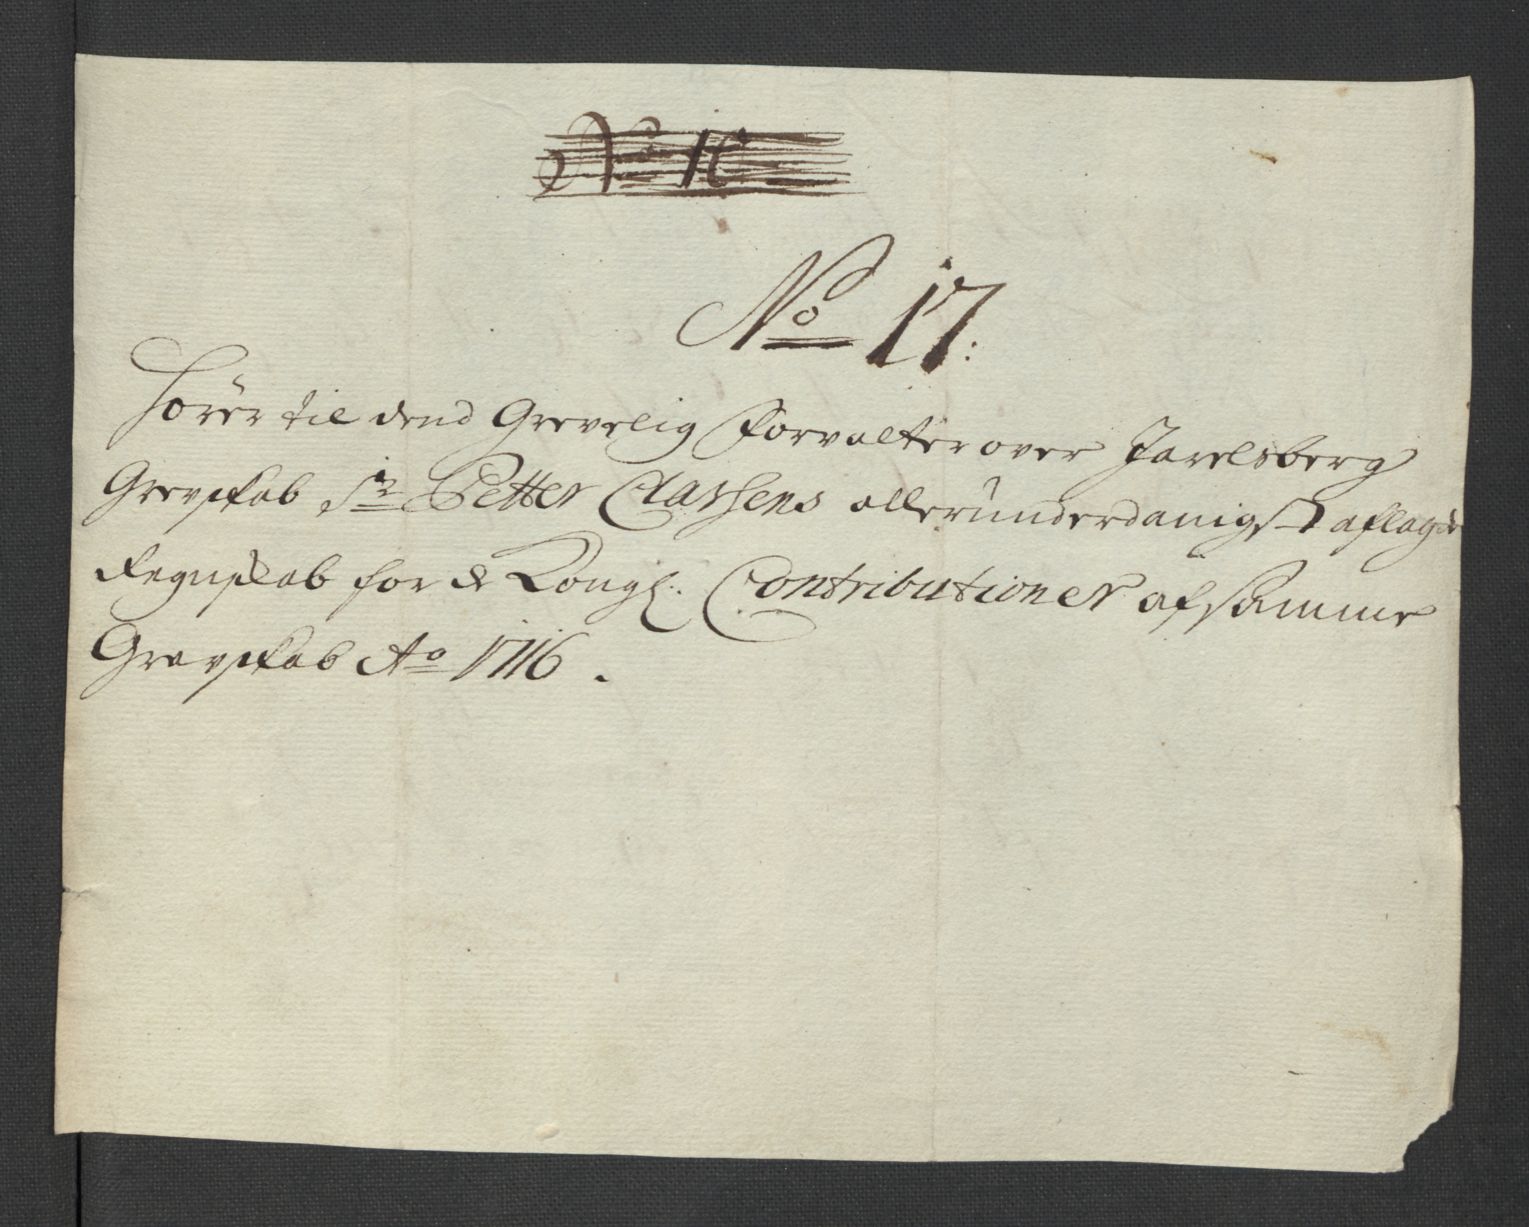 No 17:
Hörer til dend Grevelig Forvalter over Jarelsberg
Grevskab Sr Petter Clausens allerunderdanigst aflagde
Regnskab for de Kongl: Contributioner af samme
Grevskab Ao 1716.